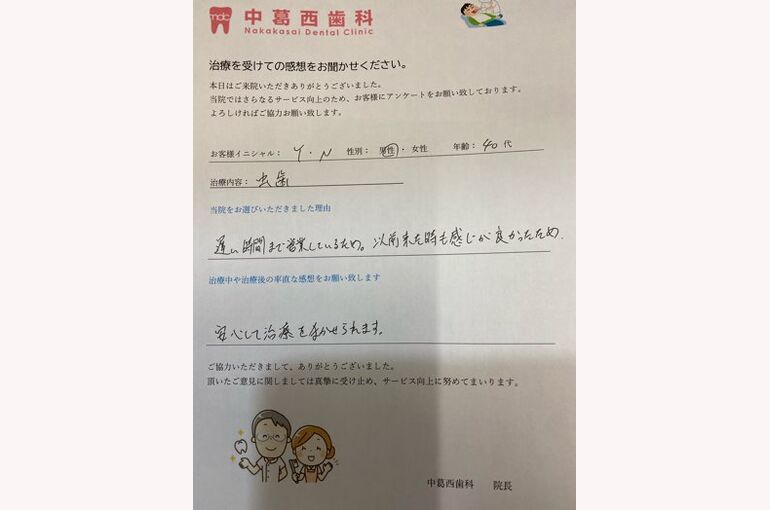 mdc 中葛西歯科
Nakakasai Dental Clinic
治療を受けての感想をお聞かせください。
本日はご来院いただきありがとうございました。
当院ではさらなるサービス向上のため、お客様にアンケートをお願い致しております。
よろしければご協力お願い致します。
お客様イニシャル： Y・N 性別： 男性・女性 年齢： 40 代
治療内容： 虫歯
当院をお選びいただきました理由
遅い時間まで営業しているため。以前来た時も感じが良かったため.
治療中や治療後の率直な感想をお願い致します
安心して治療をまかせられます。
ご協力いただきまして、ありがとうございました。
頂いたご意見に関しましては真摯に受け止め、サービス向上に努めてまいります。
中葛西歯科 院長